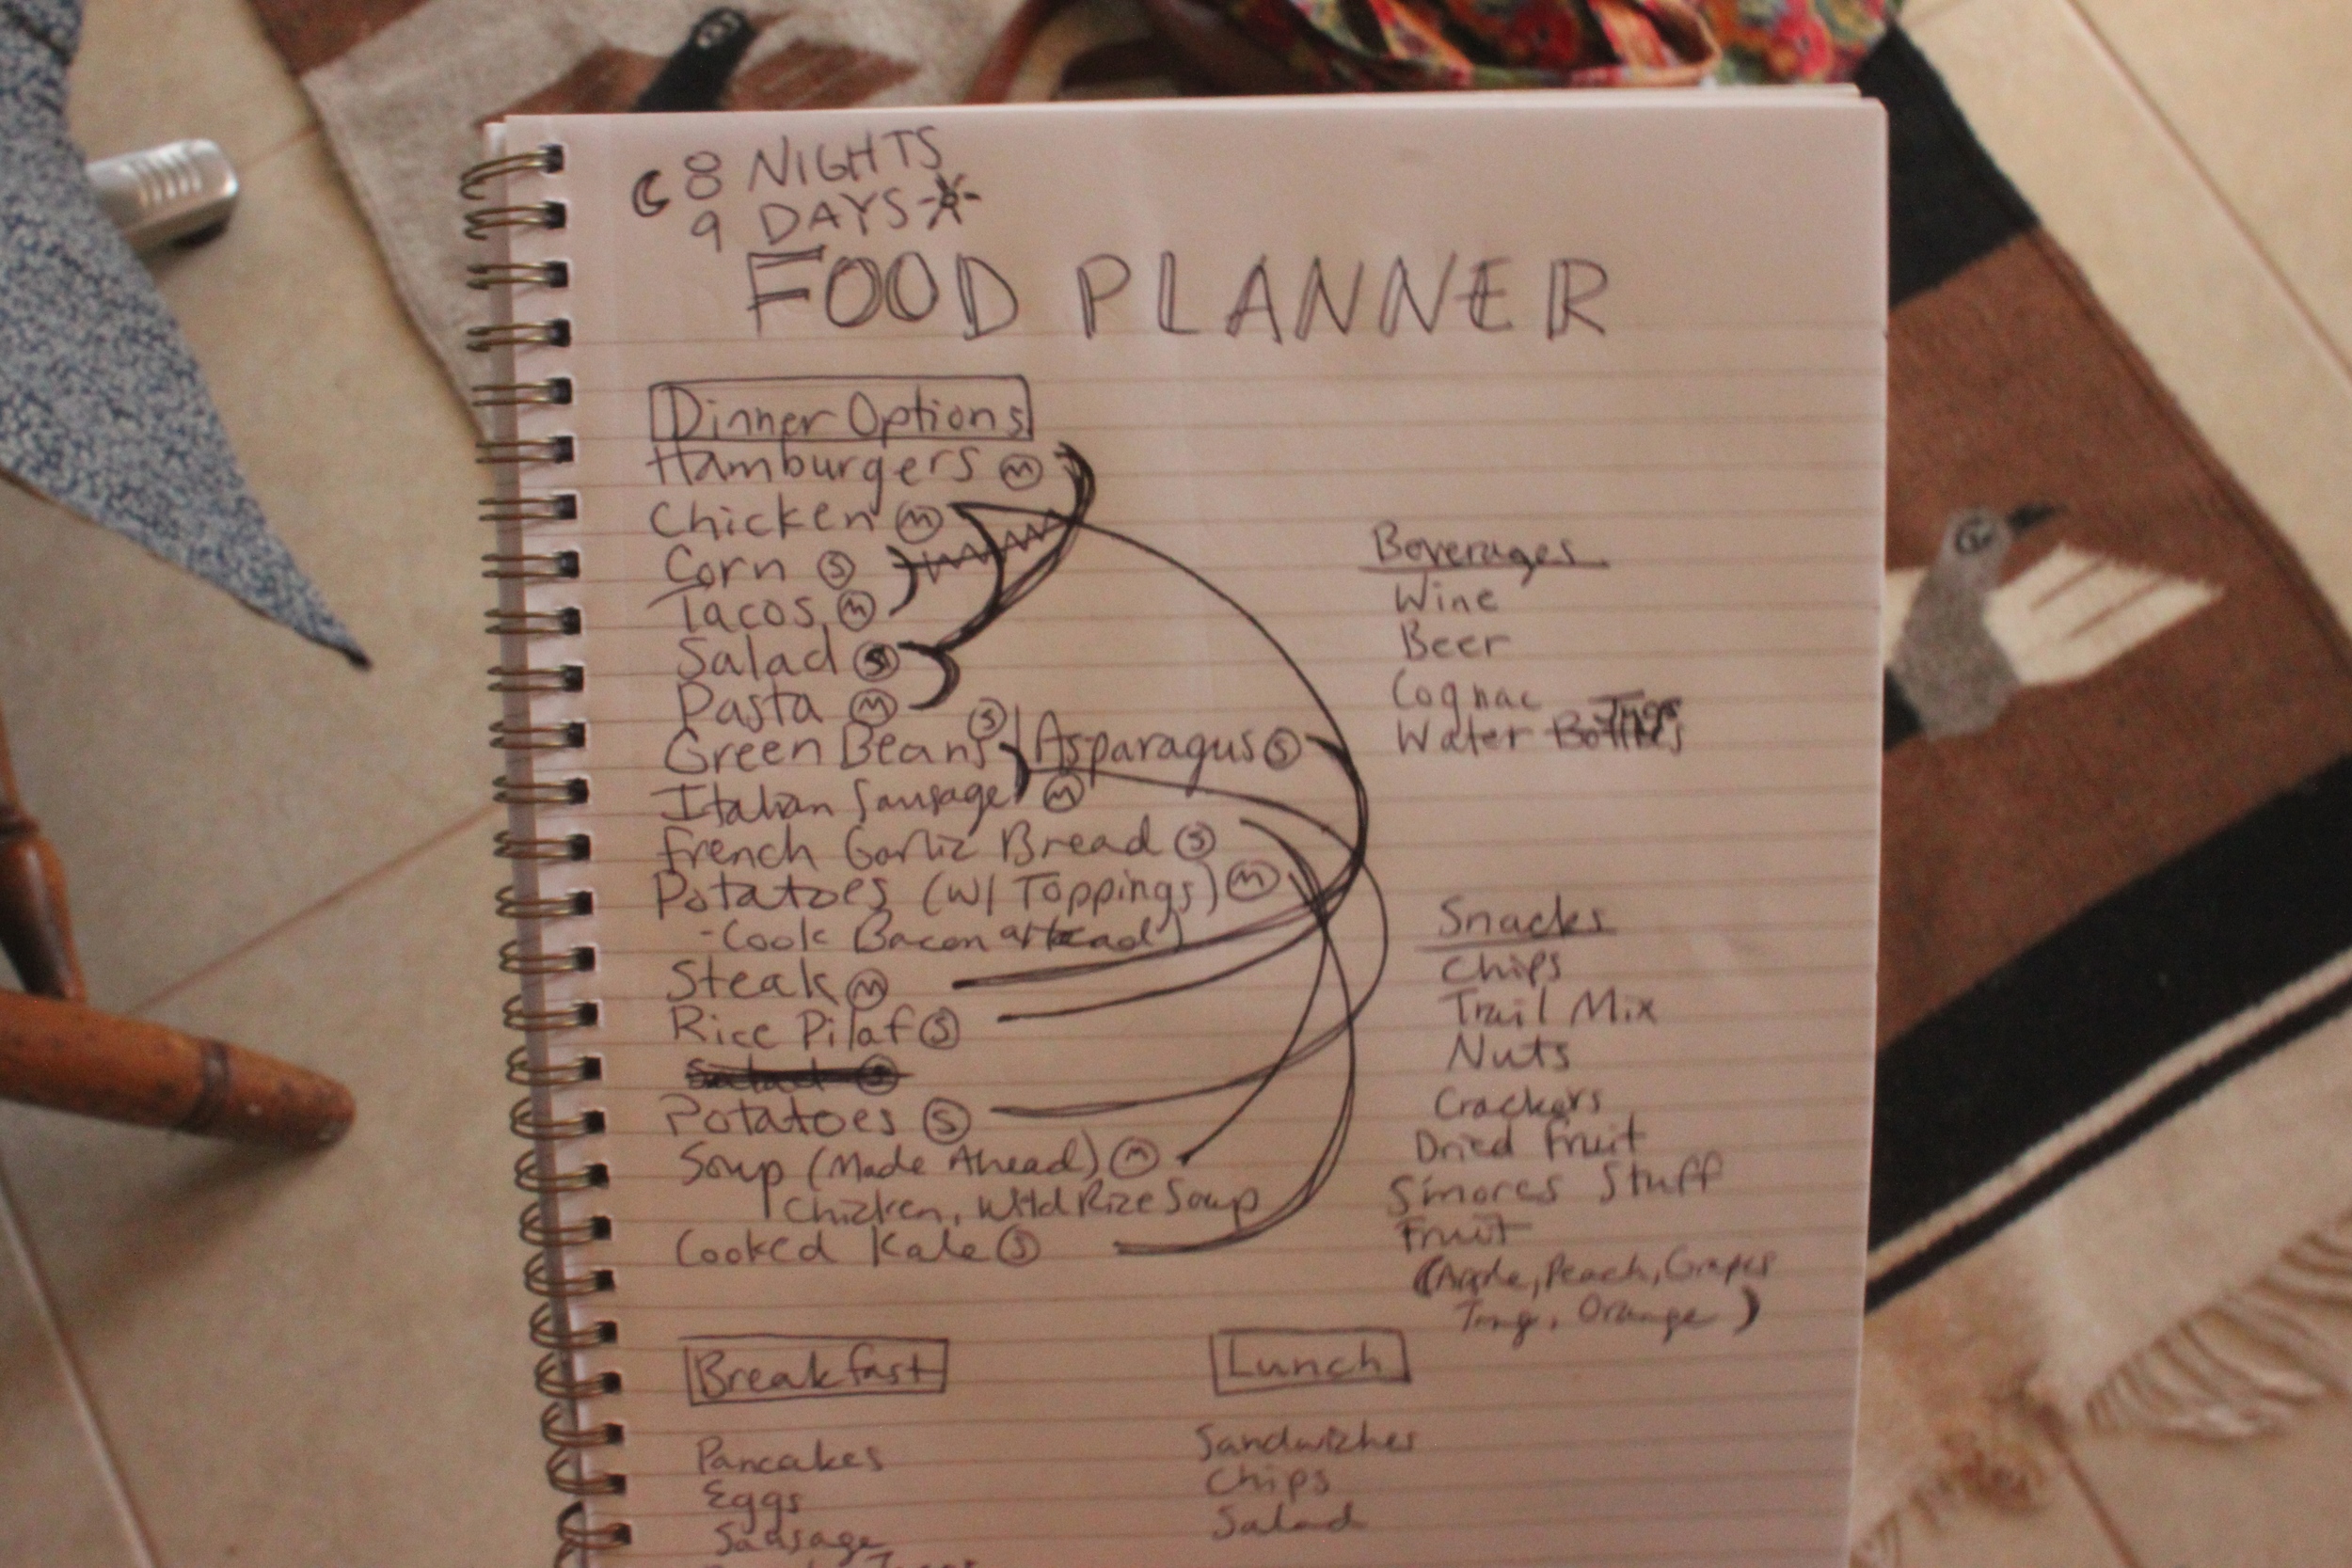 8 NIGHTS
9 DAYS
FOOD PLANNER
Dinner Options
Hamburgers M
Chicken M
Corn S
Tacos M
Salad S
Pasta M
Green Beans S | Asparagus S
Italian Sausage M
French Garlic Bread S
Potatoes (w/ Toppings) M
-Cook Bacon ahead)
Steak M
Rice Pilaf S
Salad S
Potatoes S
Soup (Made Ahead) M
Chicken, Wild Rice Soup
Cooked Kale S
Beverages
Wine
Beer
Cognac
Water Bottles Jugs
Snacks
Chips
Trail Mix
Nuts
Crackers
Dried Fruit
Smores Stuff
Fruit
(Apple, Peach, Grapes
Tang, Orange)
Breakfast
Pancakes
Eggs
Sausage
Lunch
Sandwiches
Chips
Salad